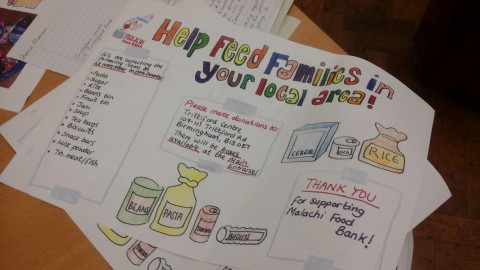 Help Feed Families in
your local area!
We are collecting the
following items
Pasta
Sugar
Rice
Beans tin
Fruit tin
Jam
Soup
Tea bags
Biscuits
Snack bars
Hot powder
Tin meat/fish
Please make donations to:
Trittiford Centre
104-111 Trittiford Rd
Birmingham, B13 0ET
There will be boxes
available at the main
entrance!
CEREAL
RICE
BEANS
PASTA
THANK YOU
For supporting
Malachi Food
Bank!